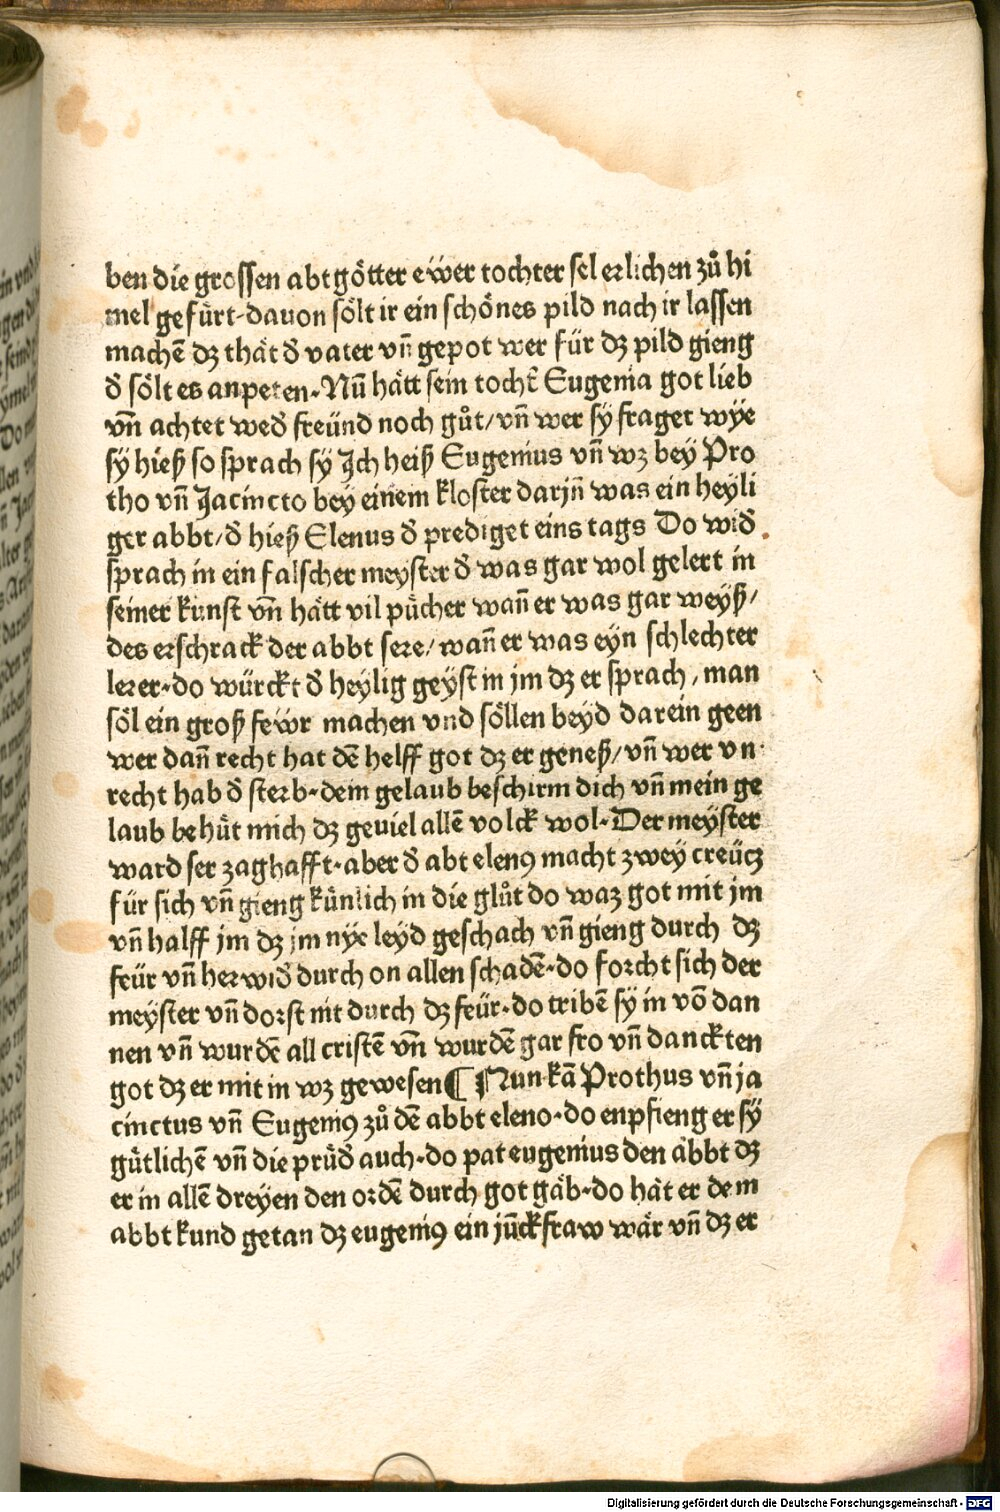 ben die grossen abtgötter ewer tochter sel erlichen zů hi
mel gefürt·dauon sölt ir ein schönes pild nach ir lassen
machē dz thät đ vater vn̄ gepot wer für dz pild gieng
đ sölt es anpeten·Nū hätt sein tocht̄ Eugenia got lieb
vn̄ achtet weđ freünd noch gůt/vn̄ wer sÿ fraget wÿe
sÿ hieß so sprach sÿ Ich heiß Eugenius vn̄ wz bey Pro
tho vn̄ Jacincto bey einem kloster darjn̄ was ein heyli
ger abbt/đ hieß Elenus đ prediget eins tags Do wiđ
sprach in ein falscher meyster đ was gar wol gelert in
seiner kunst vn̄ hätt vil pücher wan̄ er was gar weyß/
des erschrack der abbt sere/wan̄ er was eyn schlechter
lerer·do würckt đ heylig geÿst in jm dz er sprach/man
söl ein groß fewr machen vnd söllen beyd darein geen
wer dan̄ recht hat dē helff got dz er geneß/vn̄ wer vn
recht hab đ sterb·dein gelaub beschirm dich vn̄ mein ge
laub behüt mich dz geuiel allē volck wol·Der meyster
ward ser zaghafft·aber đ abt elenꝰ macht zwey creücz
für sich vn̄ gieng künlich in die glůt do waz got mit jm
vn̄ halff jm dz jm nÿe leyd geschach vn̄ gieng durch dz
feür vn̄ herwiđ durch on allen schadē·do forcht sich der
meyster vn̄ dorst nit durch dz feür·do tribē sÿ in vō dan
nen vn̄ wurdē all cristē vn̄ wurdē gar fro vn̄ danckten
got dz er mit in wz gewesen ¶ Nun kā Prothus vn̄ ja
cinctus vn̄ Eugeniꝰ zů dē abbt eleno·do enpfieng er sÿ
gütlichē vn̄ die prüđ auch·do pat eugenius den abbt dz
er in allē dreyen den ordē durch got gäb·do hät er dem
abbt kund getan dz eugeniꝰ ein jūckfraw wär vn̄ dz er
Digitalisierung gefördert durch die Deutsche Forschungsgemeinschaft - DFG